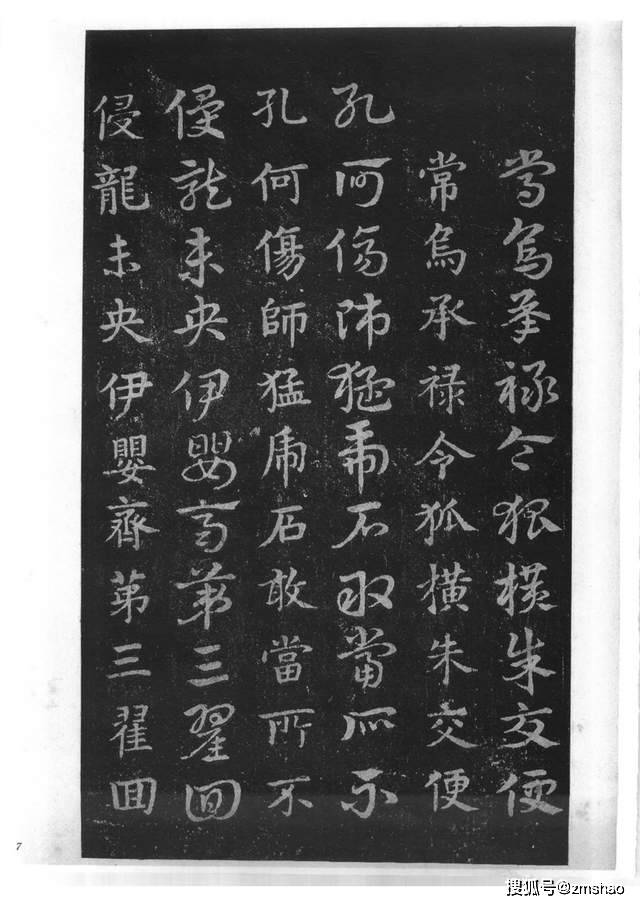 常烏承禄令狐横朱交便
常烏承禄令狐横朱交便
孔何傷師猛虎石敢當所不
孔何傷師猛虎石敢當所不
侵龍未央伊嬰齊苐三翟回
侵龍未央伊嬰齊苐三翟囬
7
搜狐号@zmshao